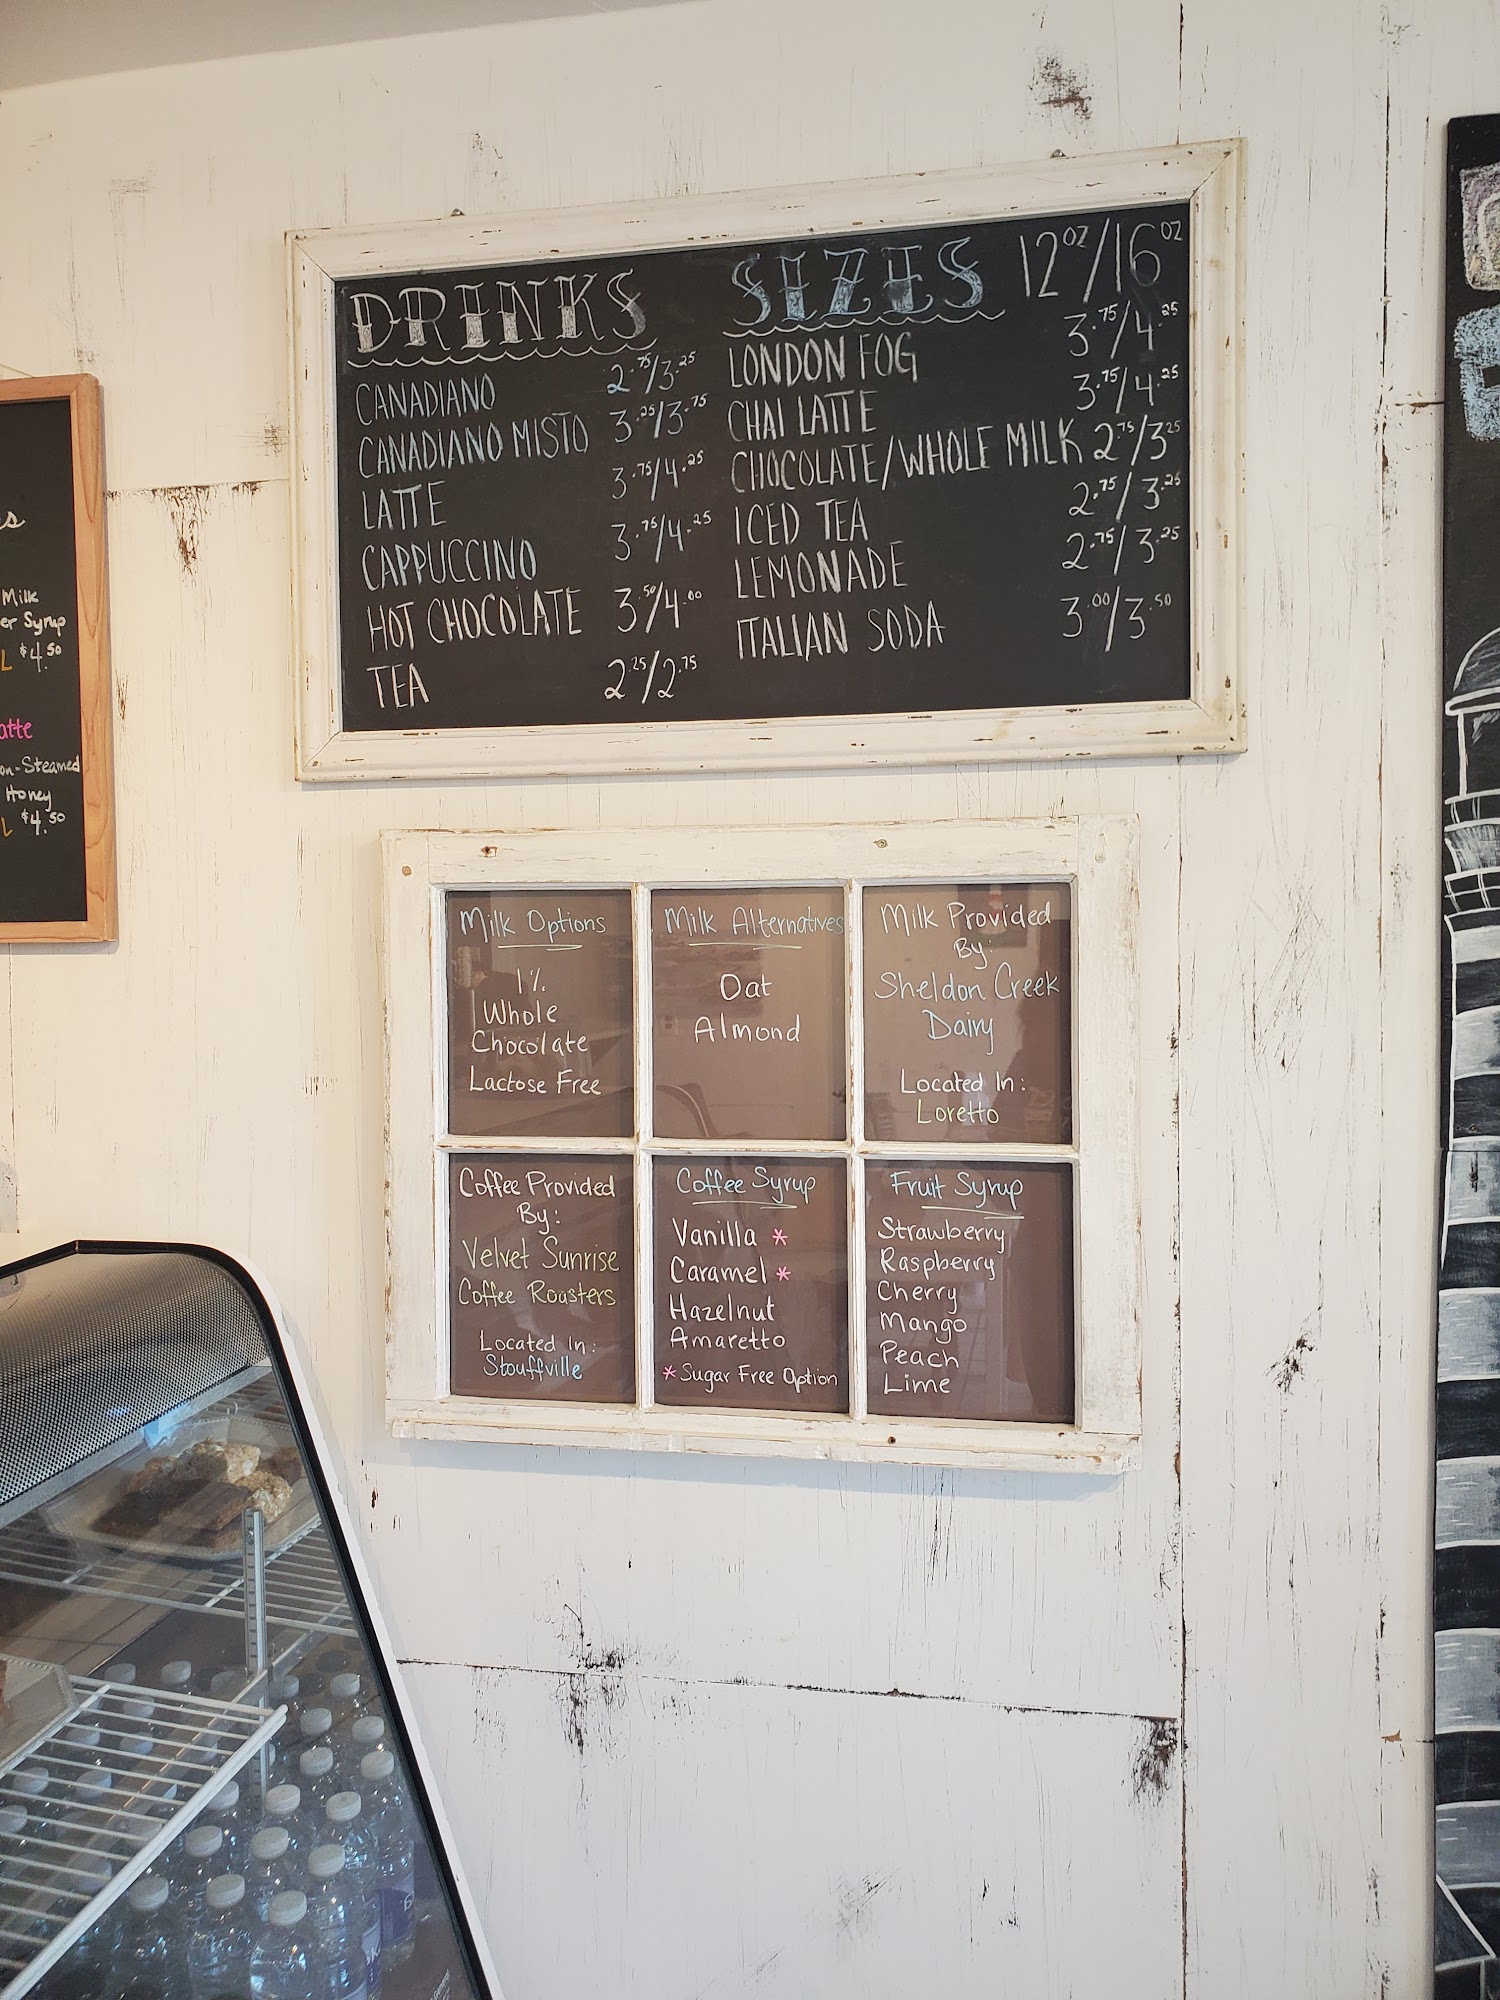 DRINKS
CANADIANO 2.75/3.25
CANADIANO MISTO 3.25/3.75
LATTE 3.75/4.25
CAPPUCCINO 3.75/4.25
HOT CHOCOLATE 3.50/4.00
TEA 2.25/2.75
SIZES 12oz/16oz
LONDON FOG 3.75/4.25
CHAI LATTE 3.75/4.25
CHOCOLATE/WHOLE MILK 2.75/3.25
ICED TEA 2.75/3.25
LEMONADE 2.75/3.25
ITALIAN SODA 3.00/3.50
Milk
Syrup
L $4.50
Steamed
Honey
L $4.50
Milk Options
1%
Whole
Chocolate
Lactose Free
Milk Alternatives
Oat
Almond
Milk Provided
By:
Sheldon Creek
Dairy
Located In:
Loretto
Coffee Provided
By:
Velvet Sunrise
Coffee Roasters
Located In:
Stouffville
Coffee Syrup
Vanilla *
Caramel *
Hazelnut
Amaretto
* Sugar Free Option
Fruit Syrup
Strawberry
Raspberry
Cherry
Mango
Peach
Lime